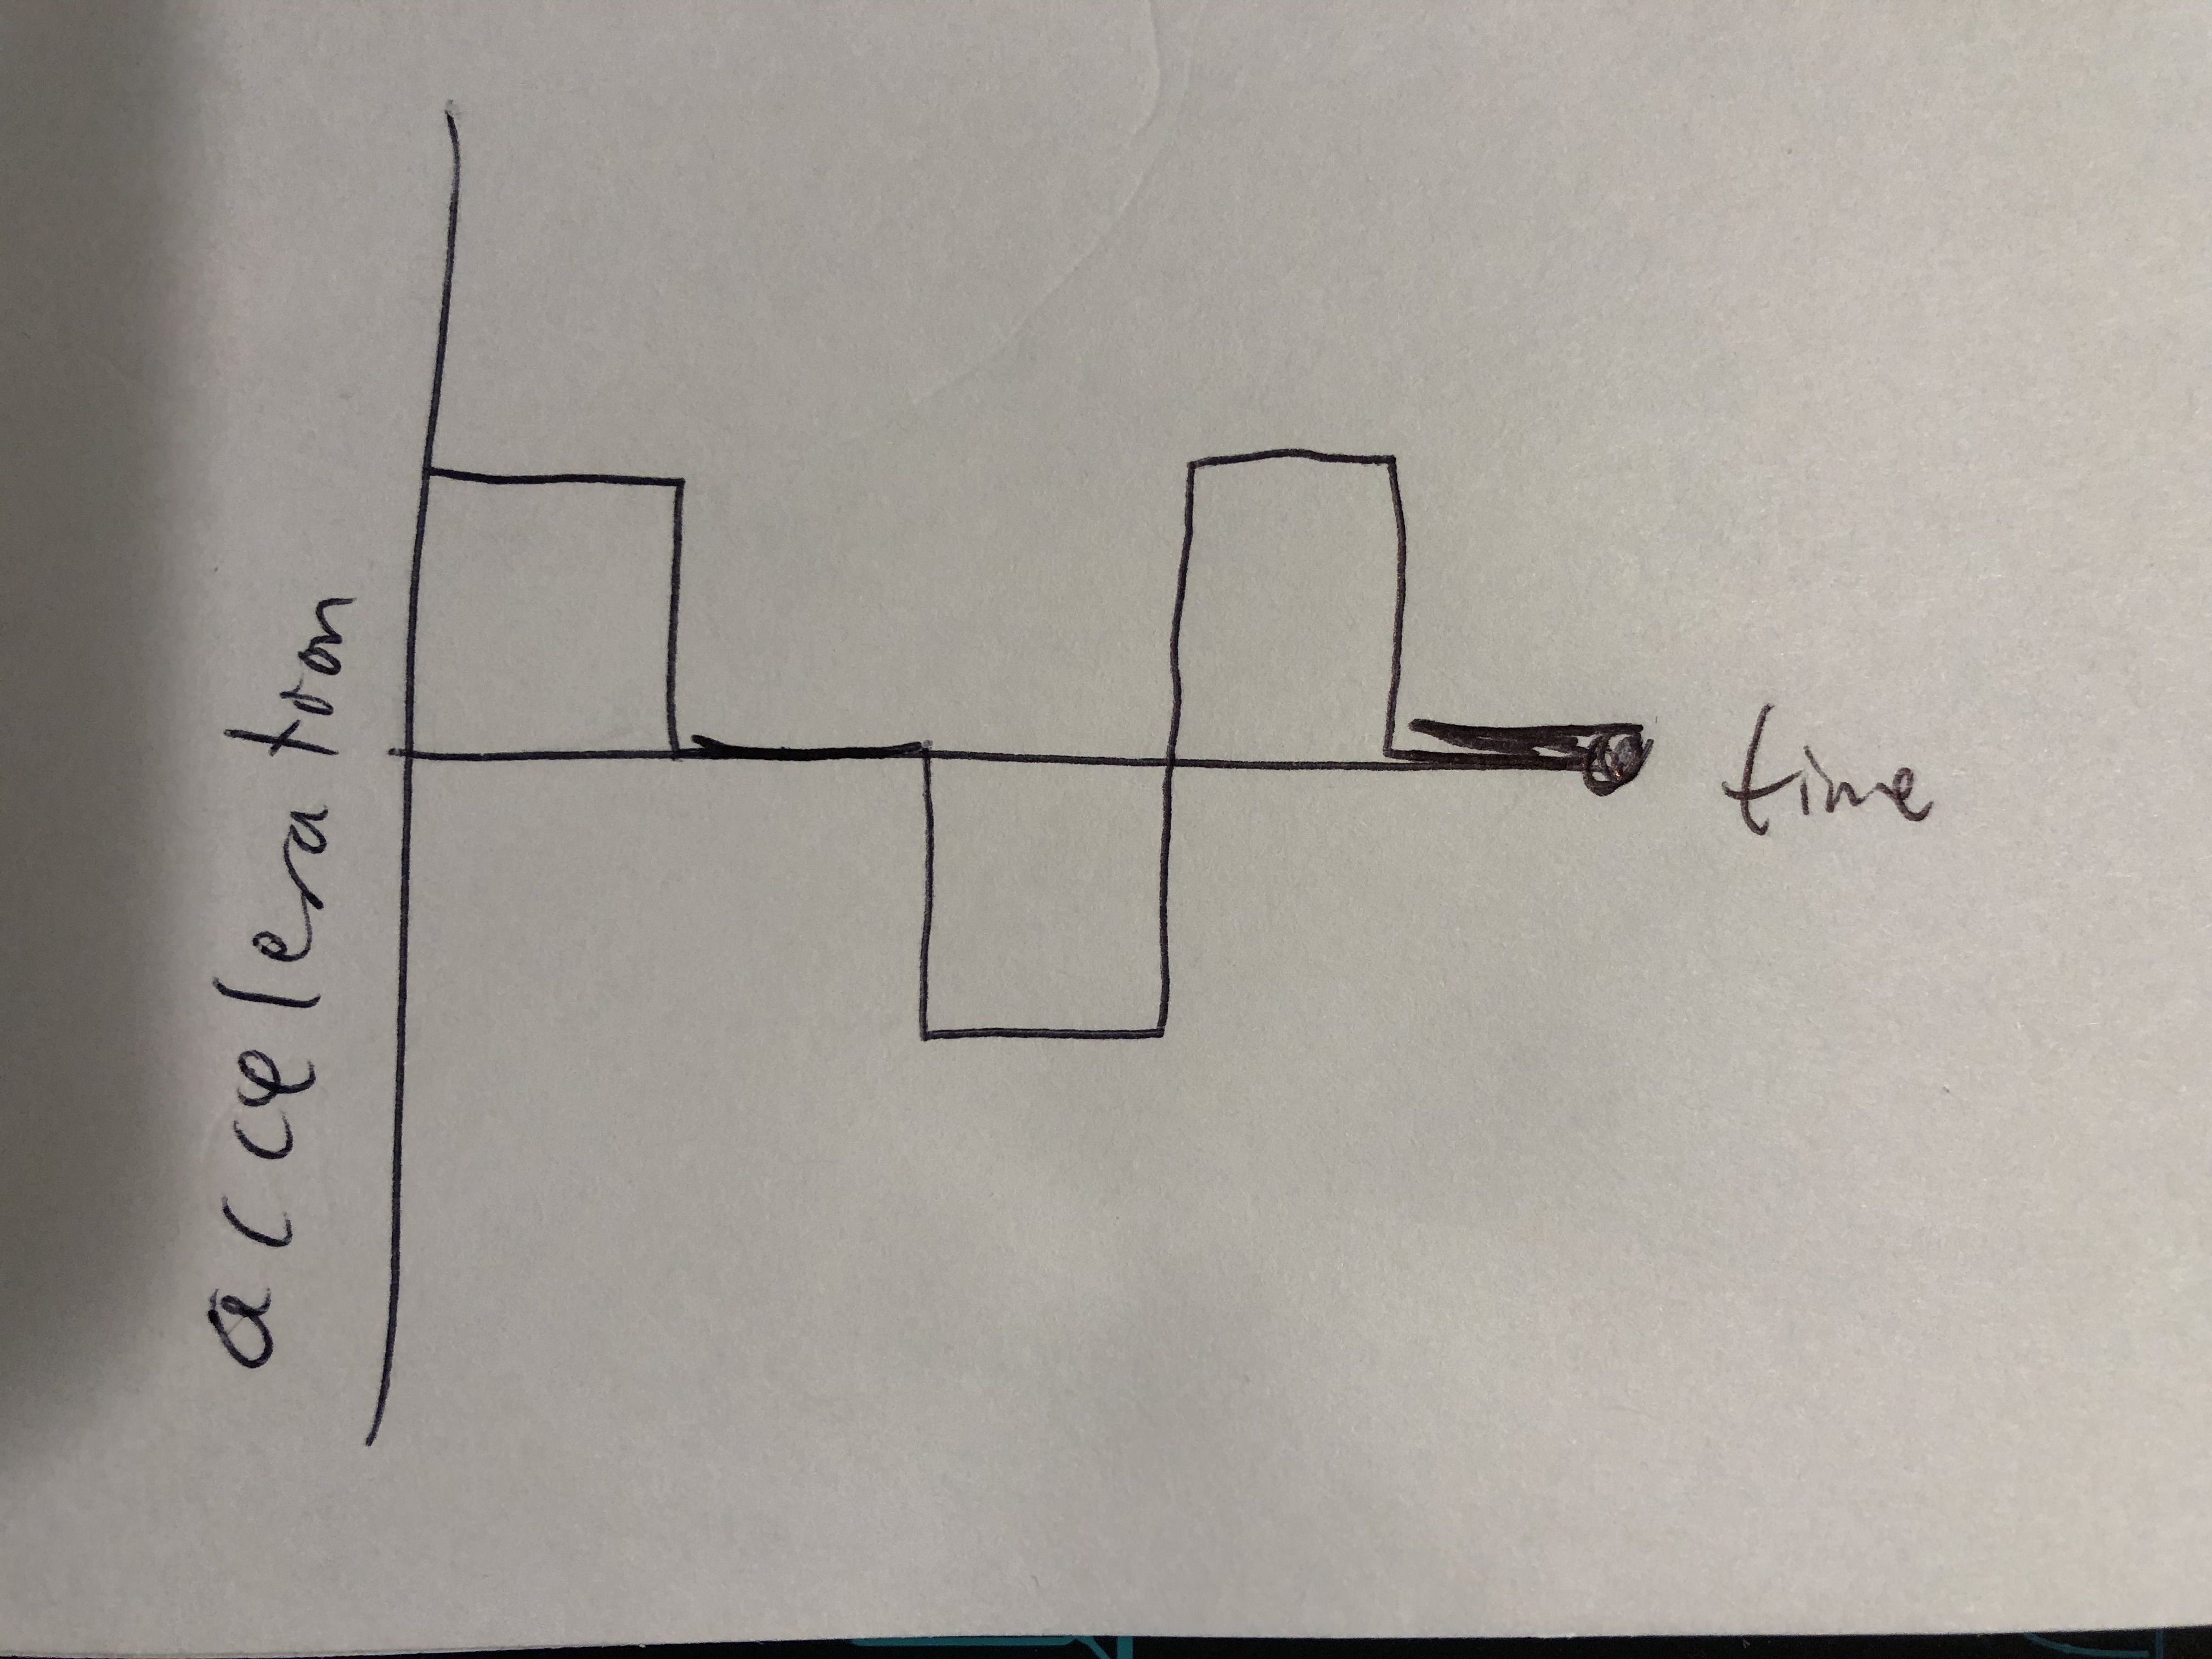 acceleration
time